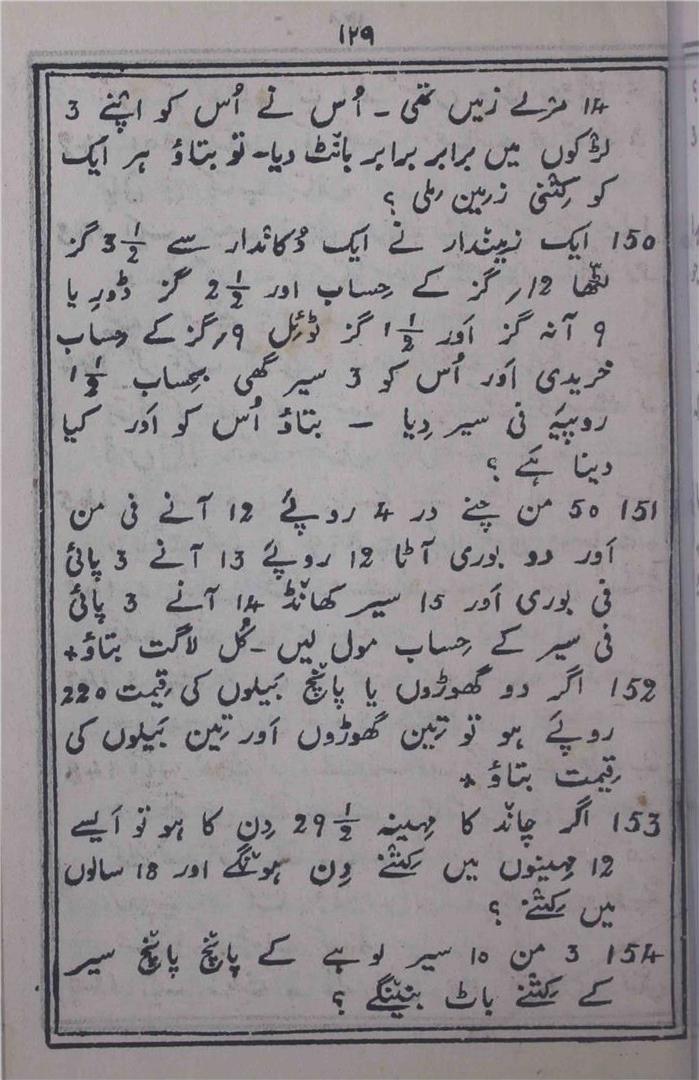 ۱۲۹
14 مرلے زمیں تھی ۔ اُس نے اُس کو اپنے 3
لڑکوں میں برابر برابر بانٹ دیا۔ تو بتاؤ ہر ایک
کو کِتنی زمین مِلی ؟
150 ایک زمیندار نے ایک دُکاندار سے 3½ گز
لٹھا 12؍ گز کے حِساب اور 2½ گز ڈوریا
9 آنہ گز اَور 1½ گز ٹوئِل 9؍ گز کے حِساب
خریدی اَور اُس کو 3 سیر گھی بحِساب 1½
روپیَہ فی سیر دِیا – بتاؤ اُس کو اَور کیا
دینا ہَے ؟
151 50 من چنے در 4 روپَے 12 آنے فی من
اَور دو بوری آٹا 12 روپَے 13 آنے 3 پائی
فی بوری اَور 15 سیر کھانڈ 14 آنے 3 پائی
فی سیر کے حِساب مول لیں ۔ کُل لاگت بتاؤ+
152 اگر دو گھوڑوں یا پانچ بَیلوں کی قِیمت 220
روپَے ہو تو تِین گھوڑوں اَور تِین بَیلوں کی
قِیمت بتاؤ +
153 اگر چاند کا مہِینہ 29½ دِن کا ہو تو اَیسے
12 مہِینوں میں کِتنے دِن ہونگے اور 18 سالوں
میں کِتنے ؟
154 3 من 10 سیر لوہے کے پانچ پانچ سیر
کے کِتنے باٹ بنینگے ؟